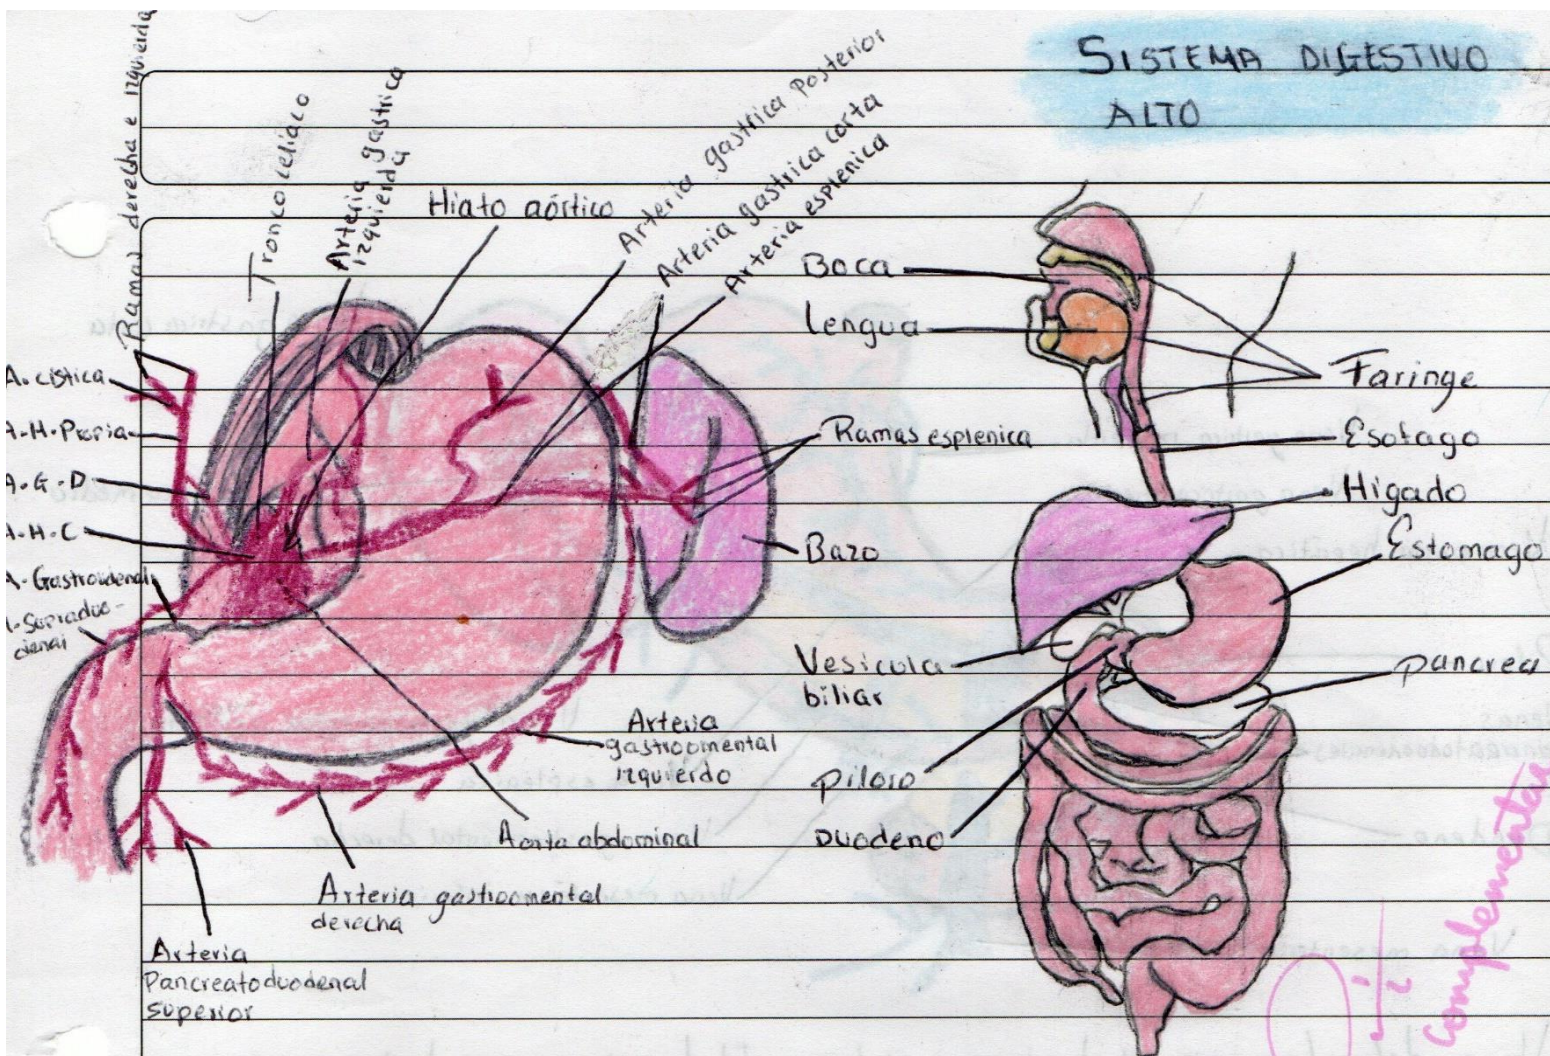 SISTEMA DIGESTIVO
ALTO
Ramas derecha e izquierda
Tronco celiaco
Arteria gastrica
izquierda
Hiato aórtico
Arteria gastrica Posterior
Arteria gastrica corta
Arteria esplenica
A. cistica
A.H. Propia
A.G.D
A.H.C
A. Gastroidenal
A. Supraduo-
denal
Ramas esplenica
Bazo
Arteria
gastroomental
izquierdo
Aorta abdominal
Arteria gastroomental
derecha
Arteria
Pancreatoduodenal
superior
Boca
Lengua
Faringe
Esofago
Higado
Estomago
Vesicula
biliar
pancrea
piloro
Duodeno
Complementar